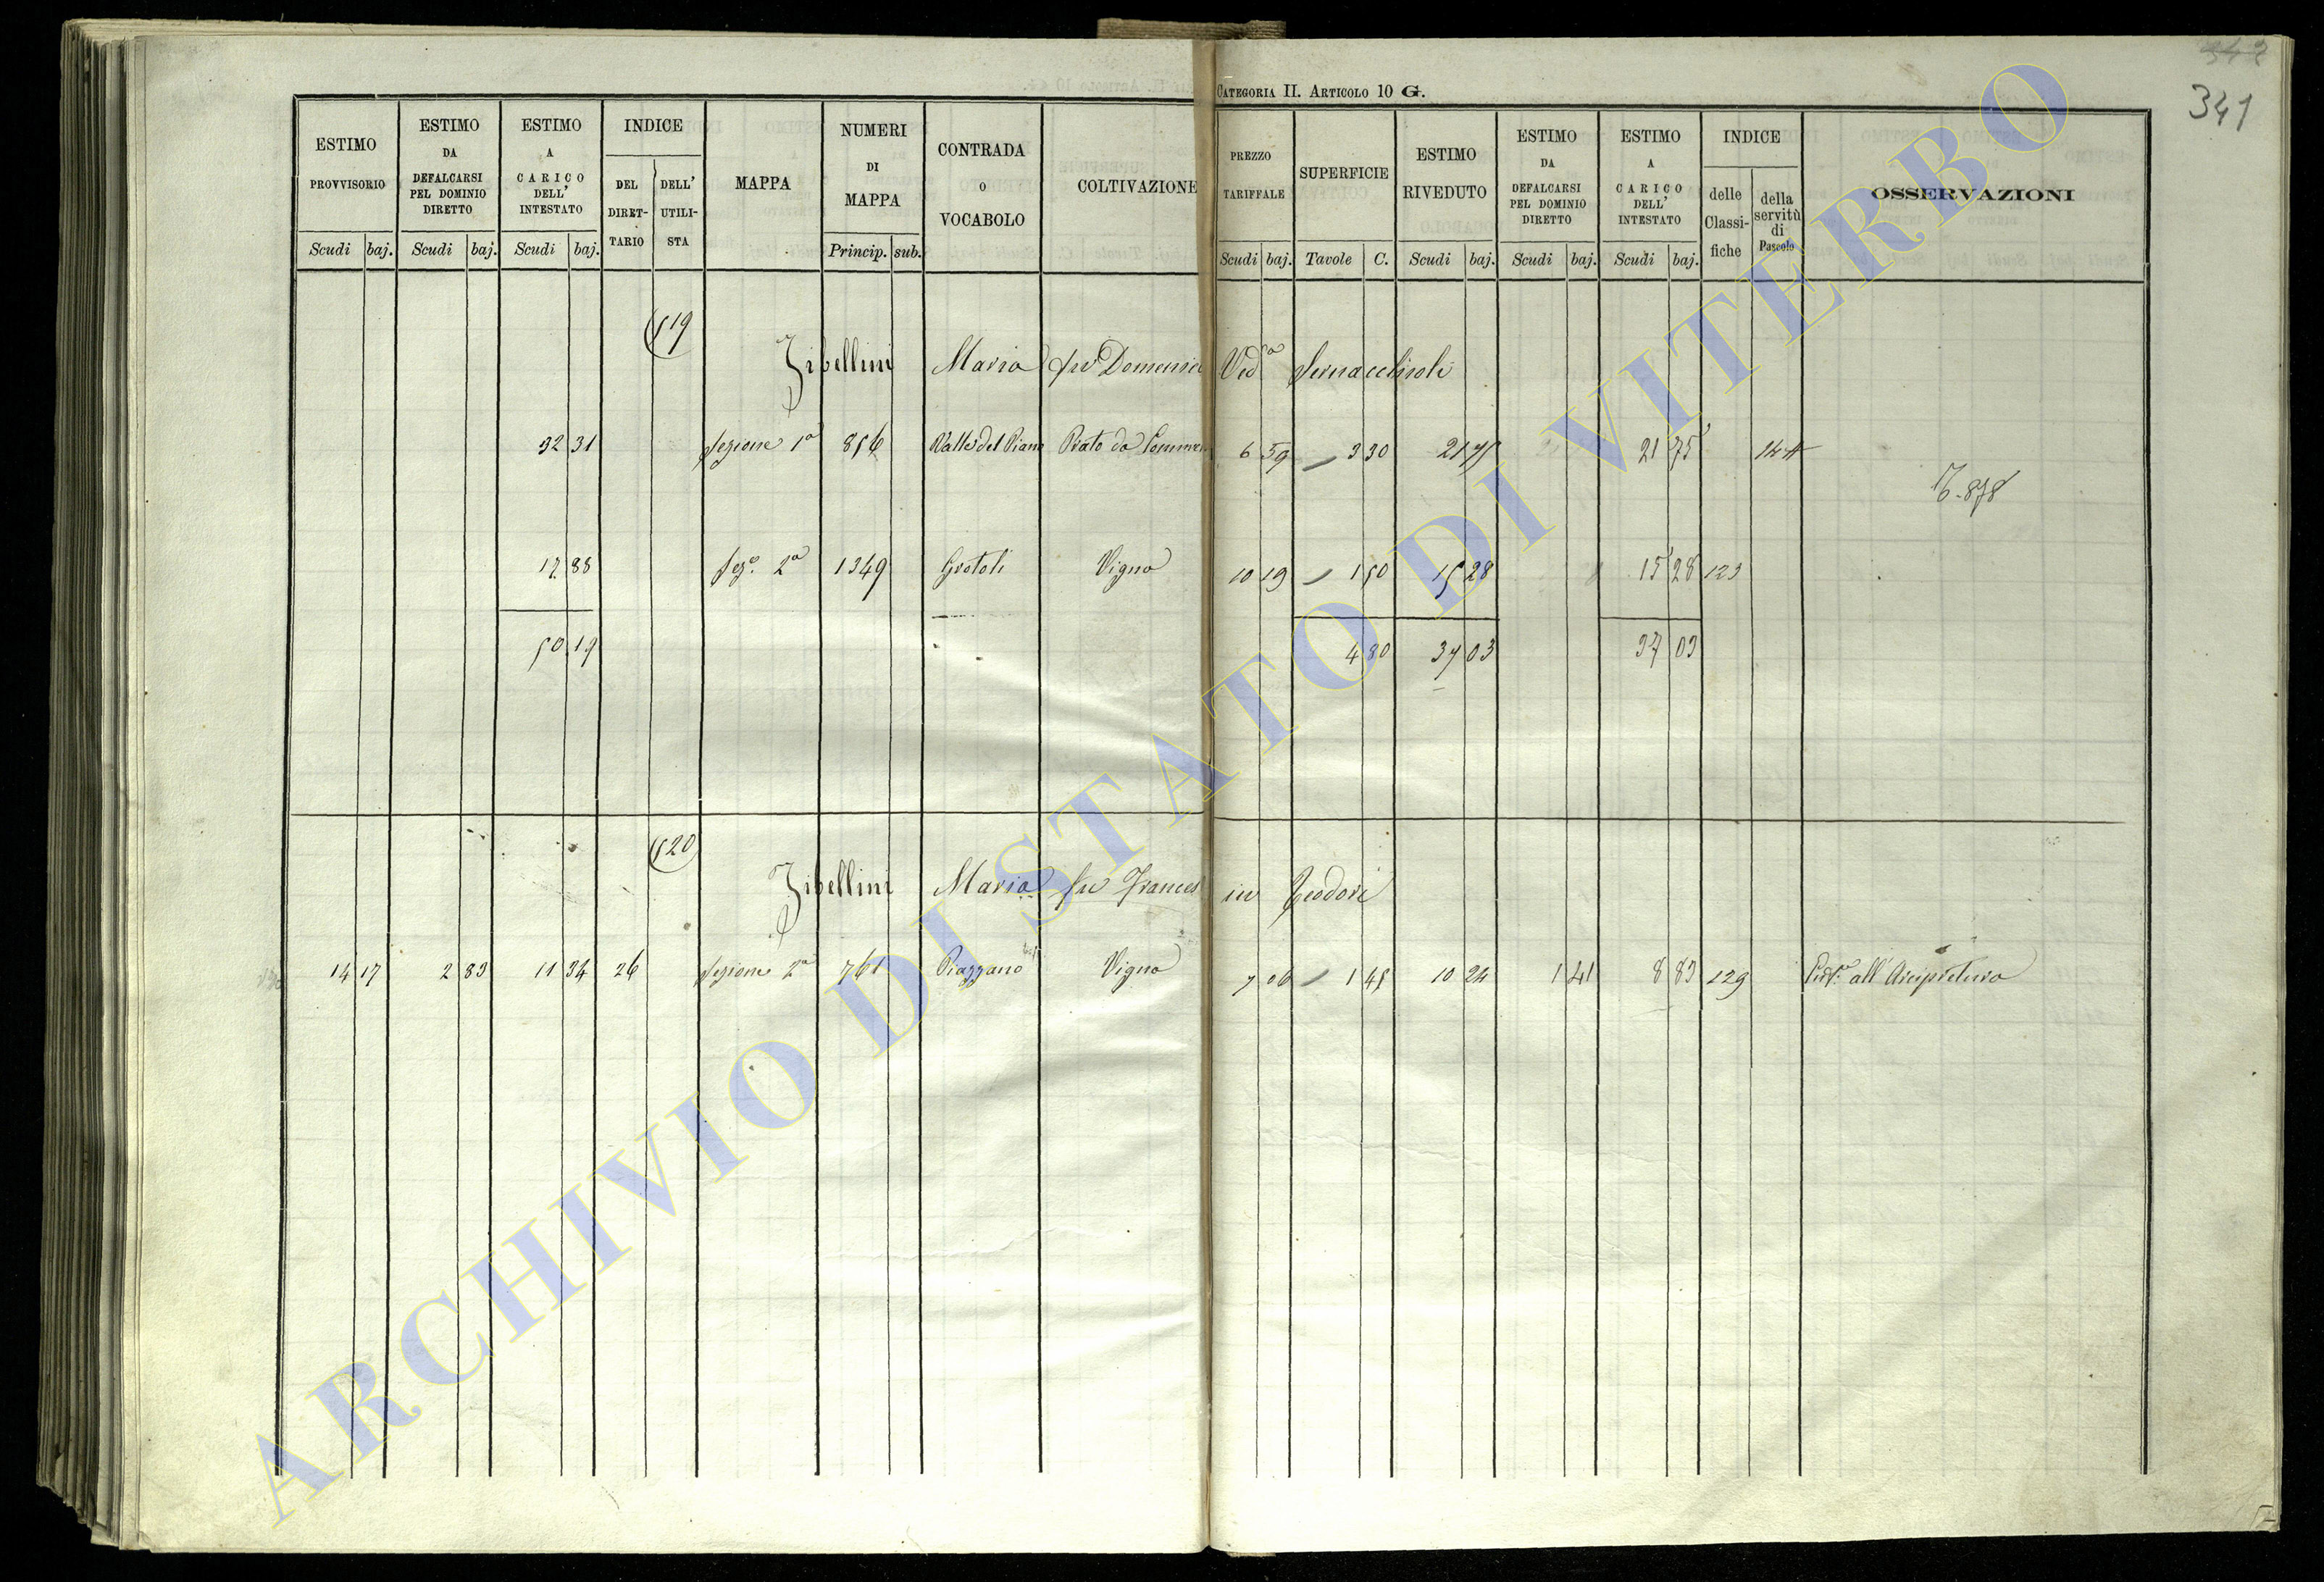 342
341
CATEGORIA II. ARTICOLO 10 G.
ESTIMO PROVVISORIO Scudi baj.
ESTIMO DA DEFALCARSI PEL DOMINIO DIRETTO Scudi baj.
ESTIMO A CARICO DELL' INTESTATO Scudi baj.
INDICE DEL DIRETTARIO DELL' UTILISTA
MAPPA
NUMERI DI MAPPA Princip. sub.
CONTRADA O VOCABOLO
COLTIVAZIONE
PREZZO TARIFFALE Scudi baj.
SUPERFICIE Tavole C.
ESTIMO RIVEDUTO Scudi baj.
ESTIMO DA DEFALCARSI PEL DOMINIO DIRETTO Scudi baj.
ESTIMO A CARICO DELL' INTESTATO Scudi baj.
INDICE delle Classifiche della servitù di Pascolo
OSSERVAZIONI
519
Zibellini Maria fu Domenico Ved.a
32 31 Sezione 1a 856 Valle del Piano Prato da 6 59 3 30 21 75 21 75 144
17 88 Sez.e 2a 1349 Grotoli Vigna 10 19 1 50 15 28 15 28 123
50 19 4 80 37 03 37 03
520
Zibellini Maria fu Frances in Teodori
14 17 2 83 11 34 26 Sezione 2a 761 Piazzano Vigna 7 06 1 45 10 24 1 41 8 83 129 all' Arcipretura
ARCHIVIO DI STATO DI VITERBO